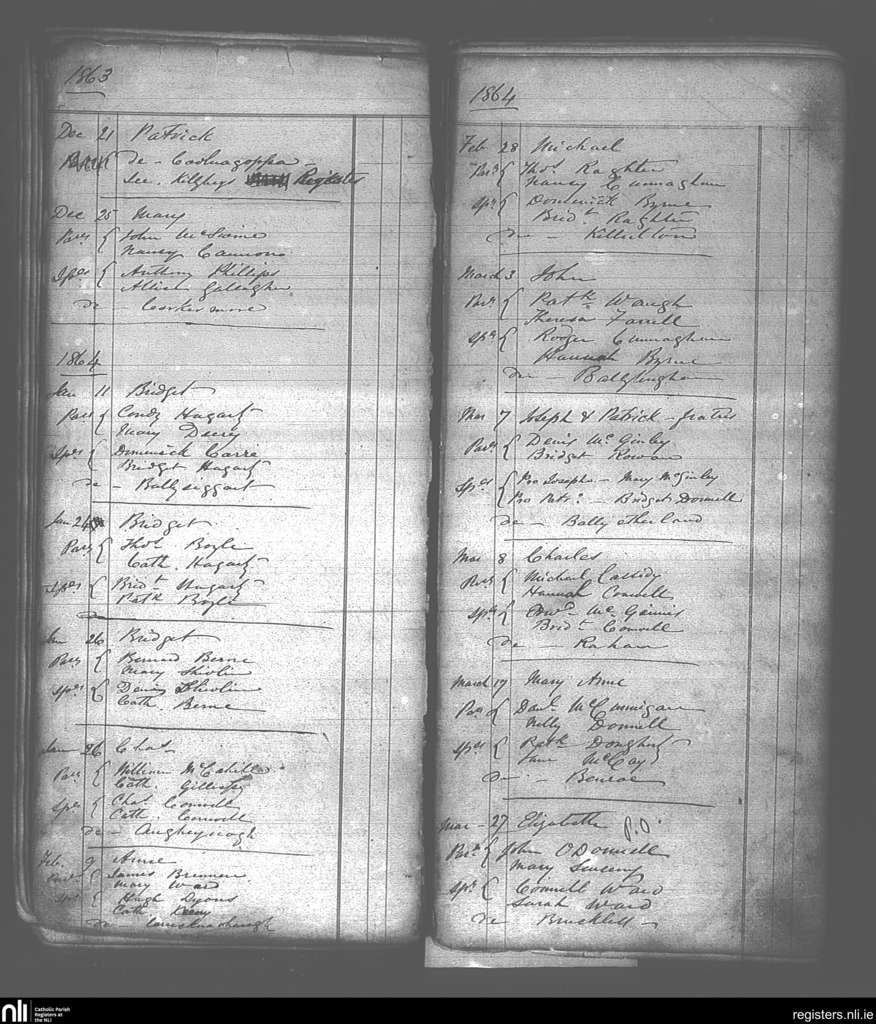 1863
Dec 21 Patrick
de - Coolnagoppa -
See. Kilybegs Register
Dec 25 Mary
Pares { John
Nancy
Spes { Anthony Phillips
Gallagher
de -
1864
Jan 11 Bridget
Pares { Condy Hagarty
Mary Deery
Spes { Dominick Carre
Bridget Hagarty
de - Ballysiggart
Jan 24 Bridget
Pars { Thos. Boyle
Cath. Hagarty
Spes { Bridt Hagarty
Patk Boyle
de
Jan 26 Bridget
Pars { Bernard Berne
Mary Shivlin
Spes { Denis Shivlin
Cath. Berne
Jan 26 Chas
Pars { William McCahill
Cath. Gillespy
Spes { Chas. Connell
Cath. Connell
de - Augheyvogh
Feb. 9 Anne
Pars { James Brennen
Mary Ward
Spes { Hugh Lyons
Cath Deery
de -
1864
Feb 28 Michael
Pars { Thos. Raghter
Nancy Cunnaghan
Sps { Dominick Byrne
Bridt Raghter
de - Killulton
March 3 John
Pars { Patk Waugh
Theresa Farrell
Sps { Rodger Cunnaghan
Hannah Byrne
de - Ballylinghan
Mar 7 Joseph & Patrick - fratres
Pars { Denis McGinley
Bridget Rowan
Spes { Pro Joseph - Mary McGinley
Pro Patr: - Bridget Donnell
de - Ballyetherland
Mar 8 Charles
Pars { Michael Cassidy
Hannah Connell
Spes { McGinnis
Bridt Connell
de - Rahan
March 17 Mary Anne
Pars { Danl McCunnigan
Nelly Donnell
Spes { Patk Dougherty
McCay
de - Benroe
Mar - 27 Elizabeth P.O.
Pars { John O'Donnell
Mary Sweeny
Sps { Connell Ward
Sarah Ward
de - Bruckless
nli
Catholic Parish
Registers at
the NLI
registers.nli.ie